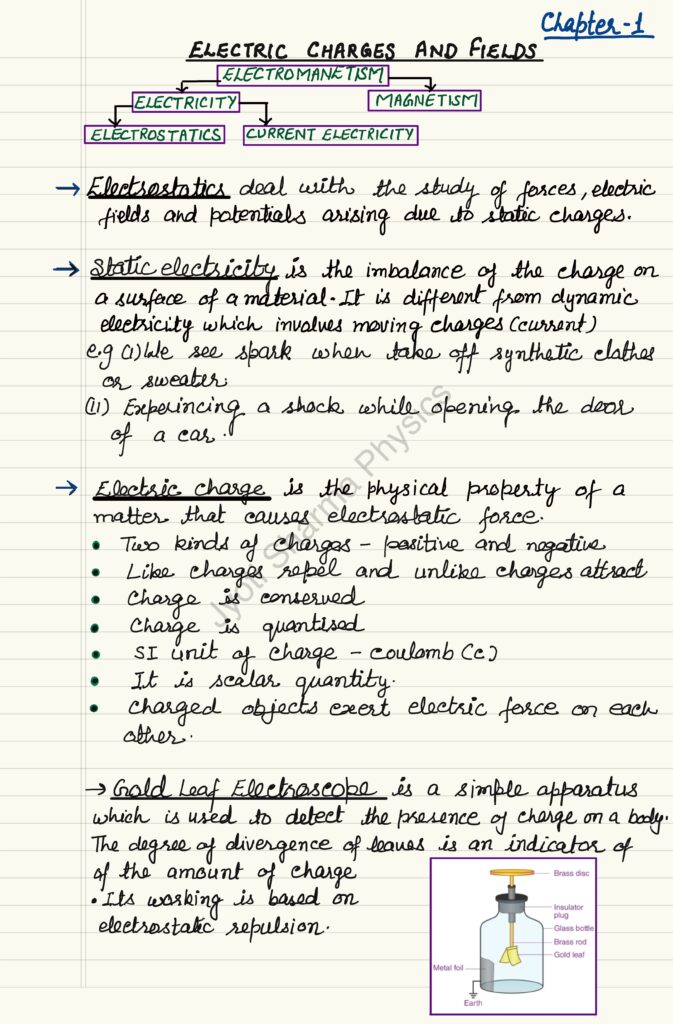 Chapter-1
ELECTRIC CHARGES AND FIELDS
ELECTROMANETISM
ELECTRICITY
MAGNETISM
ELECTROSTATICS
CURRENT ELECTRICITY
→ Electrostatics deal with the study of forces, electric
fields and potentials arising due to static charges.
→ Static electricity is the imbalance of the charge on
a surface of a material. It is different from dynamic
electricity which involves moving charges (current)
e.g (i) We see spark when take off synthetic clothes
or sweater
(ii) Experincing a shock while opening the door
of a car.
→ Electric charge is the physical property of a
matter that causes electrostatic force.
• Two kinds of charges - positive and negative
• Like charges repel and unlike charges attract
• Charge is conserved
• Charge is quantised
• SI unit of charge - coulomb (c)
• It is scalar quantity.
• charged objects exert electric force on each
other.
→ Gold Leaf Electroscope is a simple apparatus
which is used to detect the presence of charge on a body.
The degree of divergence of leaves is an indicator of
of the amount of charge
• Its working is based on
electrostatic repulsion.
Brass disc
Insulator
plug
Glass bottle
Brass rod
Gold leaf
Metal foil
Earth
Jyoti Sharma Physics